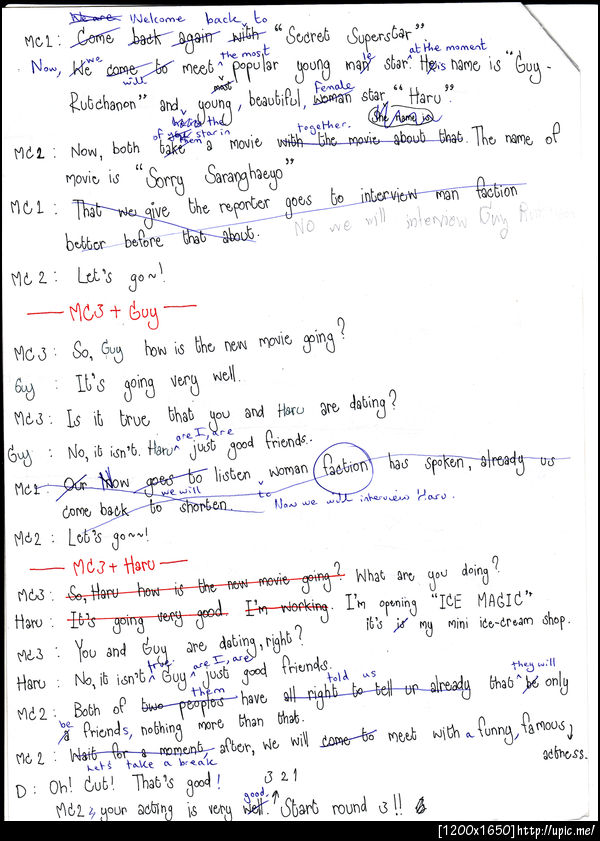 We are Welcome back to
MC1 : Come back again with "Secret Superstar"
Now, we the most le at the moment
We come to meet popular young man star. He is name is "Guy -
will most Female
Rutchanon" and, young, beautiful, woman star "Haru".
the She name is
of star in them together.
MC2 : Now, both take a movie with the movie about that. The name of
movie is "Sorry Saranghaeyo"
MC1 : That we give the reporter goes to interview man faction
better before that about. NO we will interview Guy
MC2 : Let's go~!
MC3 + Guy
MC3 : So, Guy how is the new movie going?
Guy : It's going very well.
MC3 : Is it true that you and Haru are dating?
are I, are
Guy : No, it isn't. Haru just good friends..
MC1 : Our Now goes to listen woman faction has spoken, already us
we will to
come back to shorten. Now we will interview Haru.
MC2 : Let's go~~!
MC3 + Haru
MC3 : So, Haru how is the new movie going? What are you doing?
Haru : It's going very good. I'm working. I'm opening "ICE MAGIC"
it's is my mini ice-cream shop.
MC3 : You and Guy are dating, right?
true. are I, are
Haru : No, it isn't Guy just good friends.
them told us they will
MC2 : Both of two peoples have all right to tell ur already that be only
be
a friends, nothing more than that.
MC2 : Wait for a moment, after, we will come to meet with a funny, famous
Let's take a break actness.
D : Oh! Cut! That's good! 3 2 1
good.
MC2 your acting is very well. Start round 3!!
[1200x1650] http://upic.me/